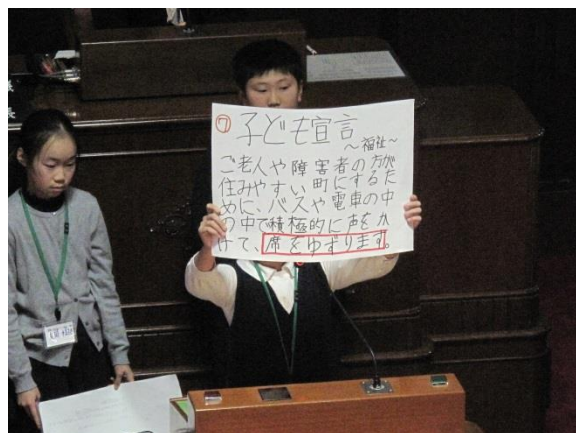 ⑦子ども宣言
～福祉～
ご老人や障害者の方が
住みやすい町にするた
めに、バスや電車の中
の中で積極的に声をか
けて、席をゆずります。